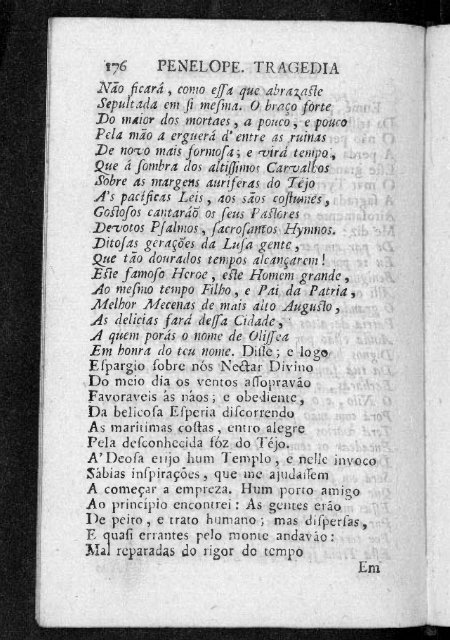 176 PENELOPE. TRAGEDIA
Não ficará, como essa que abrazaste
Sepultada em si mesma. O braço forte
Do maior dos mortaes, a pouco, e pouco
Pela mão a erguerá d'entre as ruinas
De novo mais formosa; e virá tempo,
Que á sombra dos altissimos Carvalhos
Sobre as margens auriferas do Téjo
A's pacificas Leis, aos sãos costumes,
Gostosos cantaráõ os seus Pastores
Devotos Psalmos, sacrosantos Hymnos.
Ditosas gerações da Lusa gente,
Que tão dourados tempos alcançarem!
Este famoso Heroe, este Homem grande,
Ao mesmo tempo Filho, e Pai da Patria,
Melhor Mecenas de mais alto Augusto,
As delicias fará dessa Cidade,
A quem porás o nome de Olissea
Em honra do teu nome. Disse; e logo
Espargio sobre nós Nectar Divino
Do meio dia os ventos assopravão
Favoraveis ás náos; e obediente,
Da belicosa Esperia discorrendo
As maritimas costas, entro alegre
Pela desconhecida fóz do Téjo.
A' Deosa erijo hum Templo, e nelle invoco
Sábias inspirações, que me ajudassem
A começar a empreza. Hum porto amigo
Ao principio encontrei: As gentes erão
De peito, e trato humano; mas dispersas,
E quasi errantes pelo monte andavão:
Mal reparadas do rigor do tempo
Em